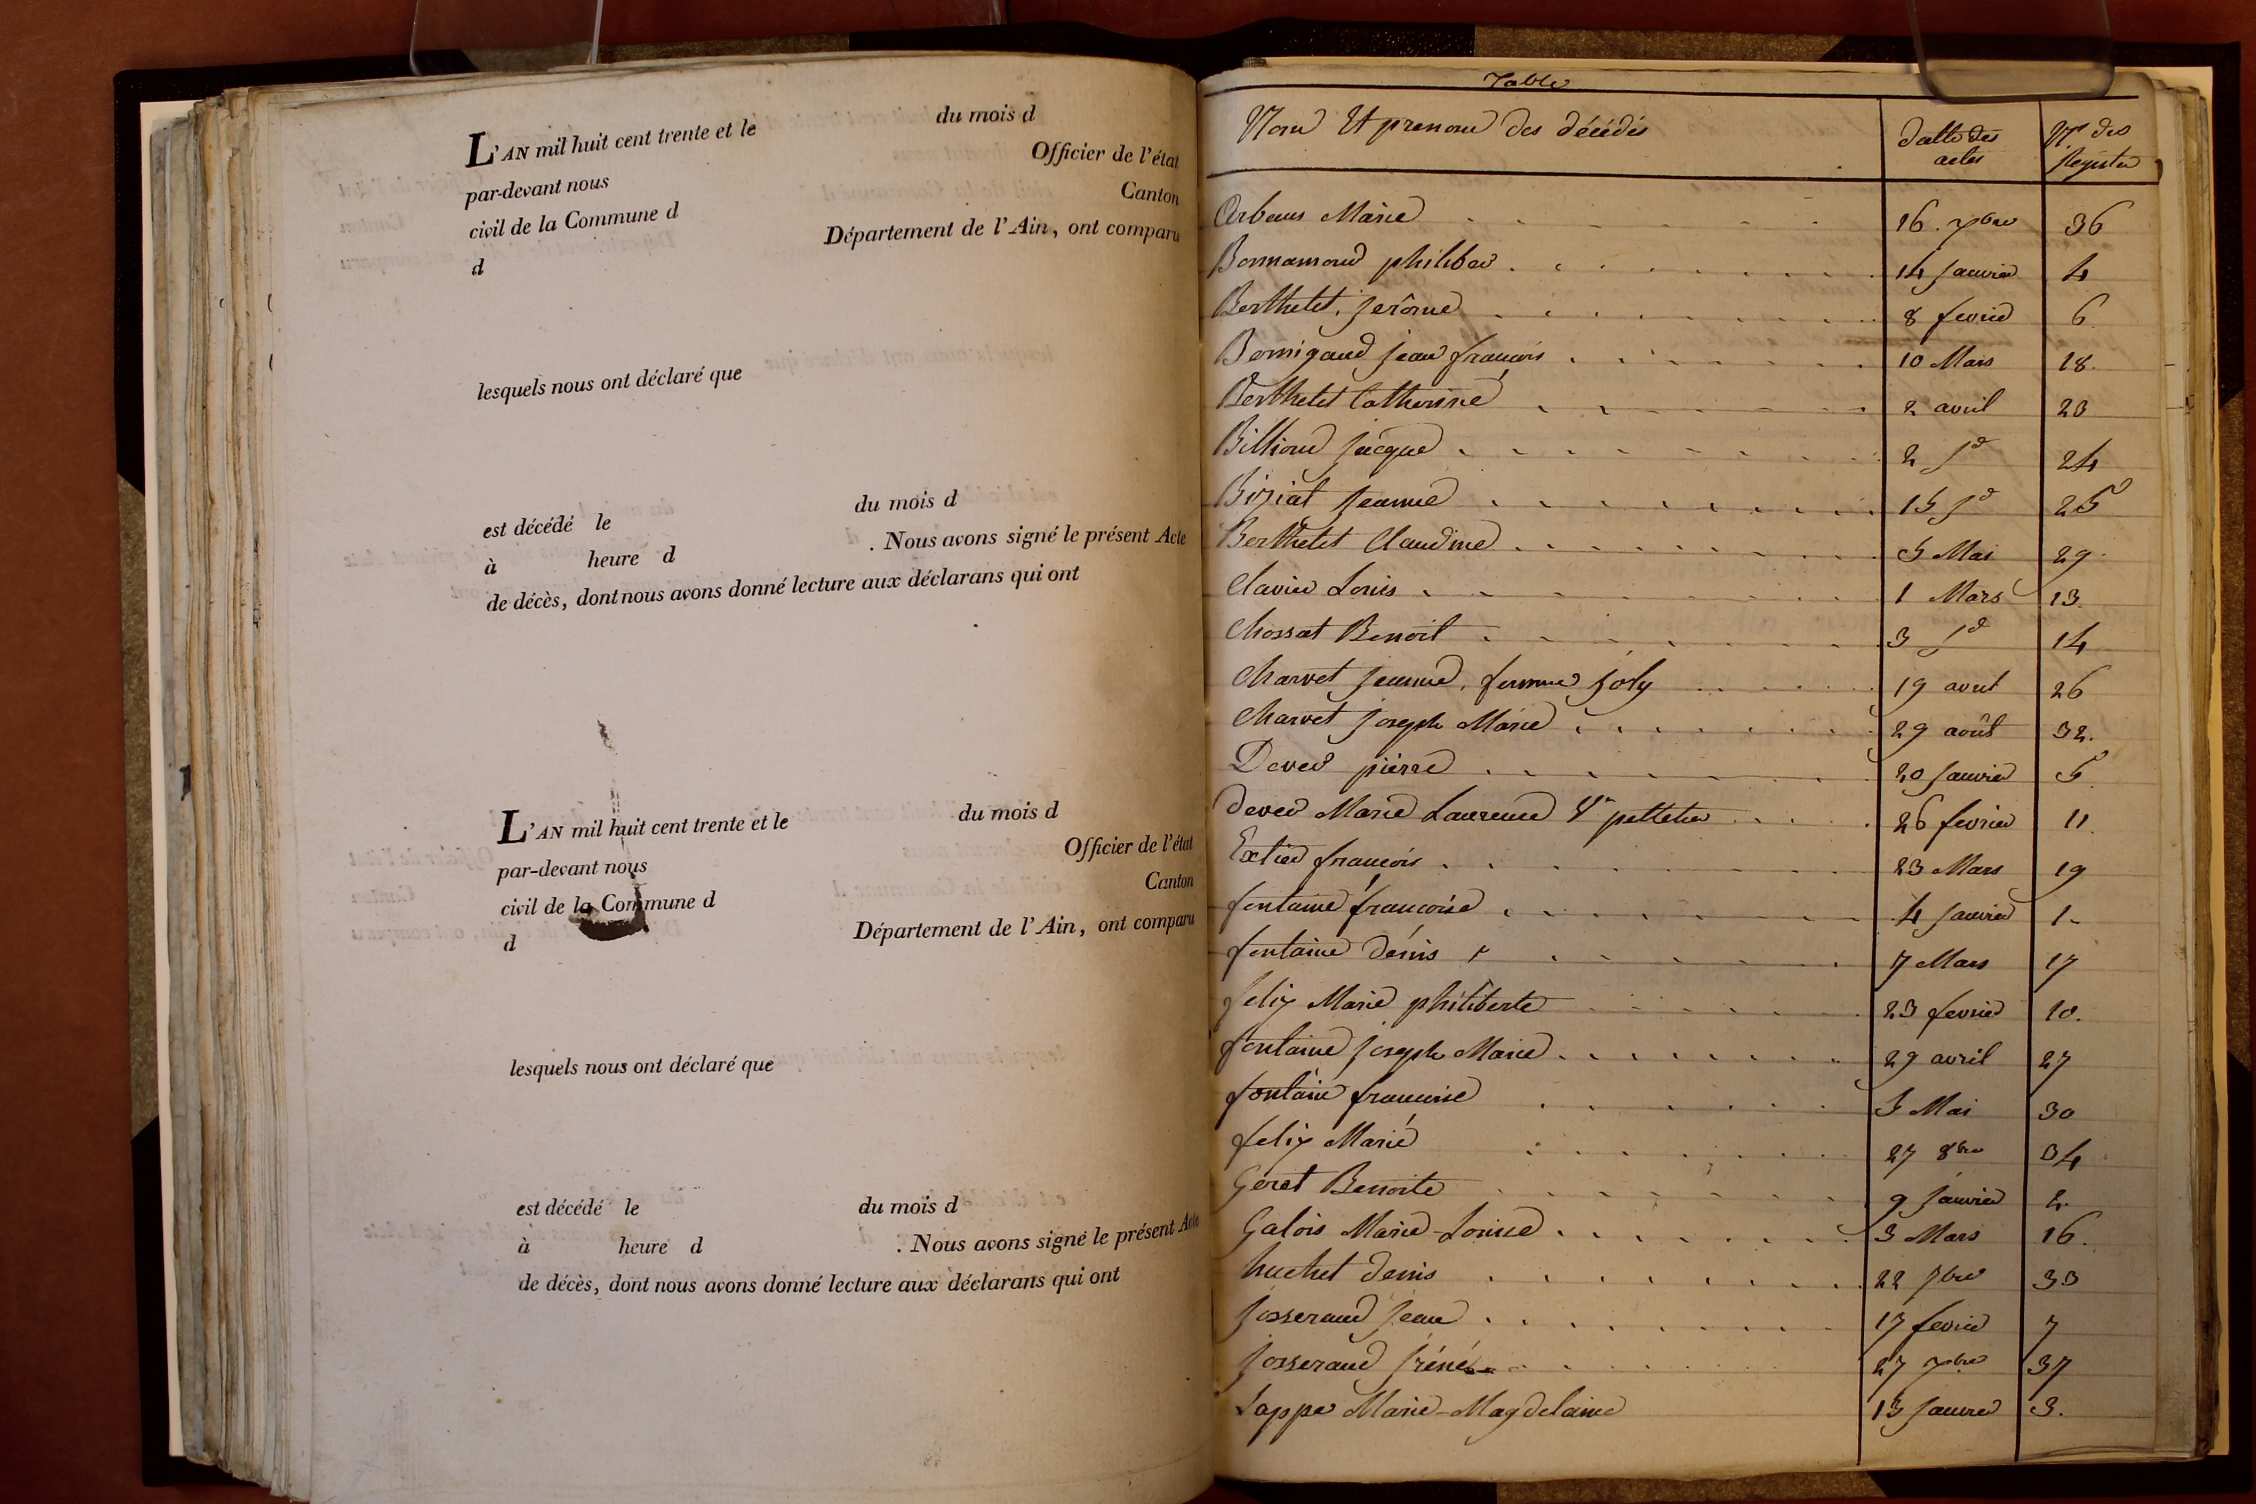 L'AN mil huit cent trente et le du mois d
par-devant nous Officier de l'état
civil de la Commune d Canton
d Département de l'Ain, ont comparu
lesquels nous ont déclaré que
est décédé le du mois d
à heure d . Nous avons signé le présent Acte
de décès, dont nous avons donné lecture aux déclarans qui ont
L'AN mil huit cent trente et le du mois d
par-devant nous Officier de l'état
civil de la Commune d Canton
d Département de l'Ain, ont comparu
lesquels nous ont déclaré que
est décédé le du mois d
à heure d . Nous avons signé le présent Acte
de décès, dont nous avons donné lecture aux déclarans qui ont
Table
Nom Et prenom des décédés datte des actes Nos des Registre
Marie 16. 36
philiber 14 janvier 4
Berthelet jerôme 8 fevrier 6
jean françois 10 Mars 18.
Berthelet Catherine 2 avril 23
Billioud jacque 2 jd 24
Biziat jeanne 15 jd 25
Berthelet Claudine 5 Mai 29.
Clavier Louis 1 Mars 13.
Chossat Benoit 3 jd 14
Charvet jeanne, femme joly 19 avril 26
Charvet joseph Marie 29 août 32.
Dever pierre 20 janvier 5.
dever Marie Laurence Ve pelletier 26 fevrier 11.
Extier françois 23 Mars 19
fontaine françoise 4 janvier 1.
fontaine denis 7 Mars 17
felix Marie philiberte 23 fevrier 10.
fontaine joseph Marie 29 avril 27
fontaine francoise 5 Mai 30
felix Marie 27 8bre 34
Geret Benoite 9 janvier 2.
Galois Marie-Louise 3 Mars 16.
huchet denis 22 7bre 33
josserand jean 17 fevrier 7
josserand jréné 27 37
Lappe Marie-Magdelaine 13 janvier 3.